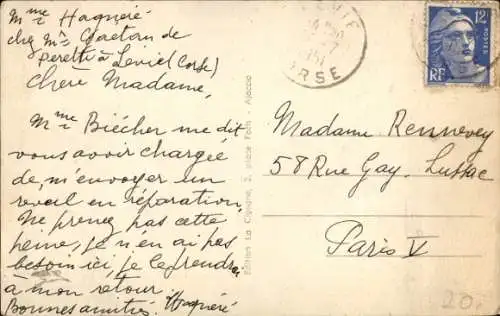 Mme Hagnéré
chez Mr Gaetan de
peretti à Levie (Corse)
Chère Madame,
Mme Biécher me dit
vous avoir chargée
de m'envoyer un
reveil en réparation
Ne prenez pas cette
peine, je n'en ai pas
besoin ici, je le prendrai
à mon retour
Bonnes amitiés. Hagnéré
Edition La Cigogne, 2, place Foch - Ajaccio
ORSE
12F
RF
Madame Rennevey
58 Rue Gay-Lussac
Paris V
20.-